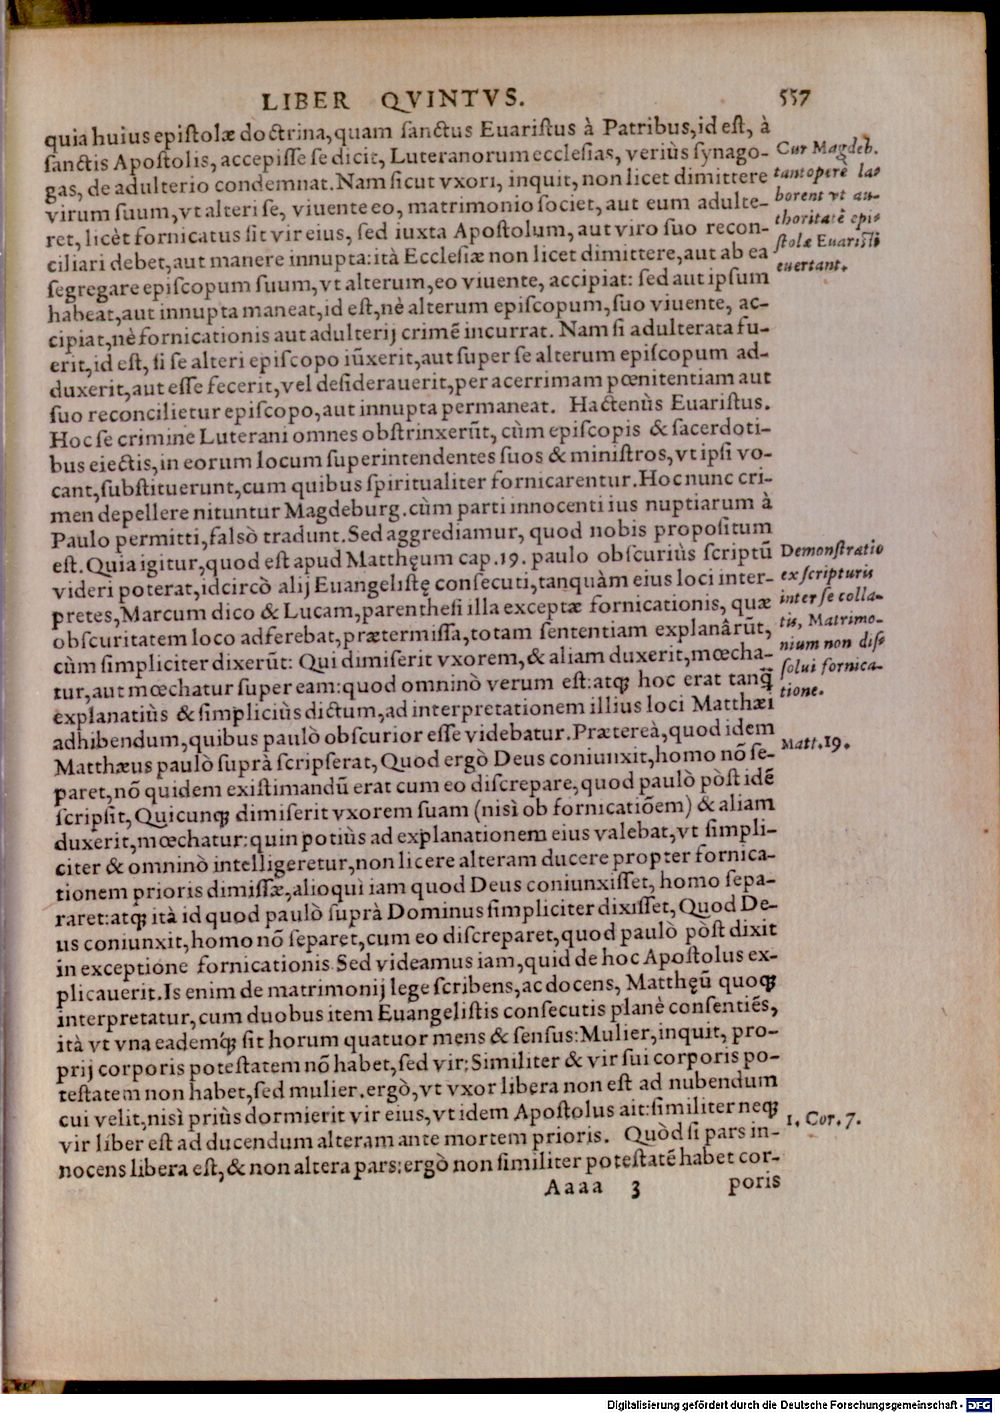 LIBER QVINTVS. 557
quia huius epistolæ doctrina, quam sanctus Euaristus à Patribus, id est, à
sanctis Apostolis, accepisse se dicit, Luteranorum ecclesias, veriùs synago-
gas, de adulterio condemnat. Nam sicut vxori, inquit, non licet dimittere
virum suum, vt alteri se, viuente eo, matrimonio societ, aut eum adulte-
ret, licèt fornicatus sit vir eius, sed iuxta Apostolum, aut viro suo recon-
ciliari debet, aut manere innupta: ità Ecclesiæ non licet dimittere, aut ab ea
segregare episcopum suum, vt alterum, eo viuente, accipiat: sed aut ipsum
habeat, aut innupta maneat, id est, nè alterum episcopum, suo viuente, ac-
cipiat, nè fornicationis aut adulterij crimẽ incurrat. Nam si adulterata fu-
erit, id est, si se alteri episcopo iũxerit, aut super se alterum episcopum ad-
duxerit, aut esse fecerit, vel desiderauerit, per acerrimam pœnitentiam aut
suo reconcilietur episcopo, aut innupta permaneat. Hactenùs Euaristus.
Hoc se crimine Luterani omnes obstrinxerũt, cùm episcopis & sacerdoti-
bus eiectis, in eorum locum superintendentes suos & ministros, vt ipsi vo-
cant, substituerunt, cum quibus spiritualiter fornicarentur. Hoc nunc cri-
men depellere nituntur Magdeburg. cùm parti innocenti ius nuptiarum à
Paulo permitti, falsò tradunt. Sed aggrediamur, quod nobis propositum
est. Quia igitur, quod est apud Matthęum cap. 19. paulo obscuriùs scriptũ
videri poterat, idcircò alij Euangelistę consecuti, tanquàm eius loci inter-
pretes, Marcum dico & Lucam, parenthesi illa exceptæ fornicationis, quæ
obscuritatem loco adferebat, prætermissa, totam sententiam explanârũt,
cùm simpliciter dixerũt: Qui dimiserit vxorem, & aliam duxerit, mœcha-
tur, aut mœchatur super eam: quod omninò verum est: atq; hoc erat tanq̃
explanatiùs & simpliciùs dictum, ad interpretationem illius loci Matthæi
adhibendum, quibus paulò obscurior esse videbatur. Prætereà, quod idem
Matthæus paulò suprà scripserat, Quod ergò Deus coniunxit, homo nõ se-
paret, nõ quidem existimandũ erat cum eo discrepare, quod paulò pòst idẽ
scripsit, Quicunq; dimiserit vxorem suam (nisì ob fornicatiõem) & aliam
duxerit, mœchatur: quin potiùs ad explanationem eius valebat, vt simpli-
citer & omninò intelligeretur, non licere alteram ducere propter fornica-
tionem prioris dimissæ, alioqui iam quod Deus coniunxisset, homo sepa-
raret: atq; ità id quod paulò suprà Dominus simpliciter dixisset, Quod De-
us coniunxit, homo nõ separet, cum eo discreparet, quod paulò pòst dixit
in exceptione fornicationis. Sed videamus iam, quid de hoc Apostolus ex-
plicauerit. Is enim de matrimonij lege scribens, ac docens, Matthęũ quoq;
interpretatur, cum duobus item Euangelistis consecutis planè consentiẽs,
ità vt vna eademq́; sit horum quatuor mens & sensus: Mulier, inquit, pro-
prij corporis potestatem nõ habet, sed vir: Similiter & vir sui corporis po-
testatem non habet, sed mulier. ergò, vt vxor libera non est ad nubendum
cui velit, nisì priùs dormierit vir eius, vt idem Apostolus ait: similiter neq;
vir liber est ad ducendum alteram ante mortem prioris. Quòd si pars in-
nocens libera est, & non altera pars: ergò non similiter potestatẽ habet cor-
Aaaa 3 poris
Cur Magdeb.
tantoperè la-
borent vt au-
thoritatẽ epi-
stolæ Euaristi
euertant.
Demonstratio
ex scripturis
inter se colla-
tis, Matrimo-
nium non dis-
solui fornica-
tione.
Matt. 19.
1. Cor. 7.
Digitalisierung gefördert durch die Deutsche Forschungsgemeinschaft - DFG